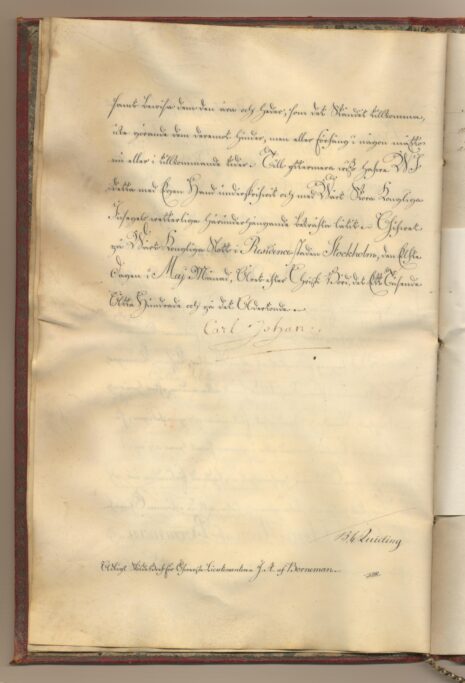 samt bewisa dem den ära och heder, som det Ståndet tillkomma,
icke görande dem deremot hinder, men eller förfång i någon måtto
nu eller i tillkommande tider. Till yttermera wisso hafwe Wi
detta med Egen Hand underskrifwit och med Wårt Stora Kongliga
Insegels wetterliga härunderhängande bekräfta låtit. Skrifwet
på Wårt Kongliga Slott i Residence-staden Stockholm, den
dagen i Maj Månad, Året efter Christi Börd, det Ett Tusende
Åtta Hundrade och på det Adertonde.
Carl Johan
Adligt Sköldebref för Öfwerste Lieutenanten J. A. af Borneman.